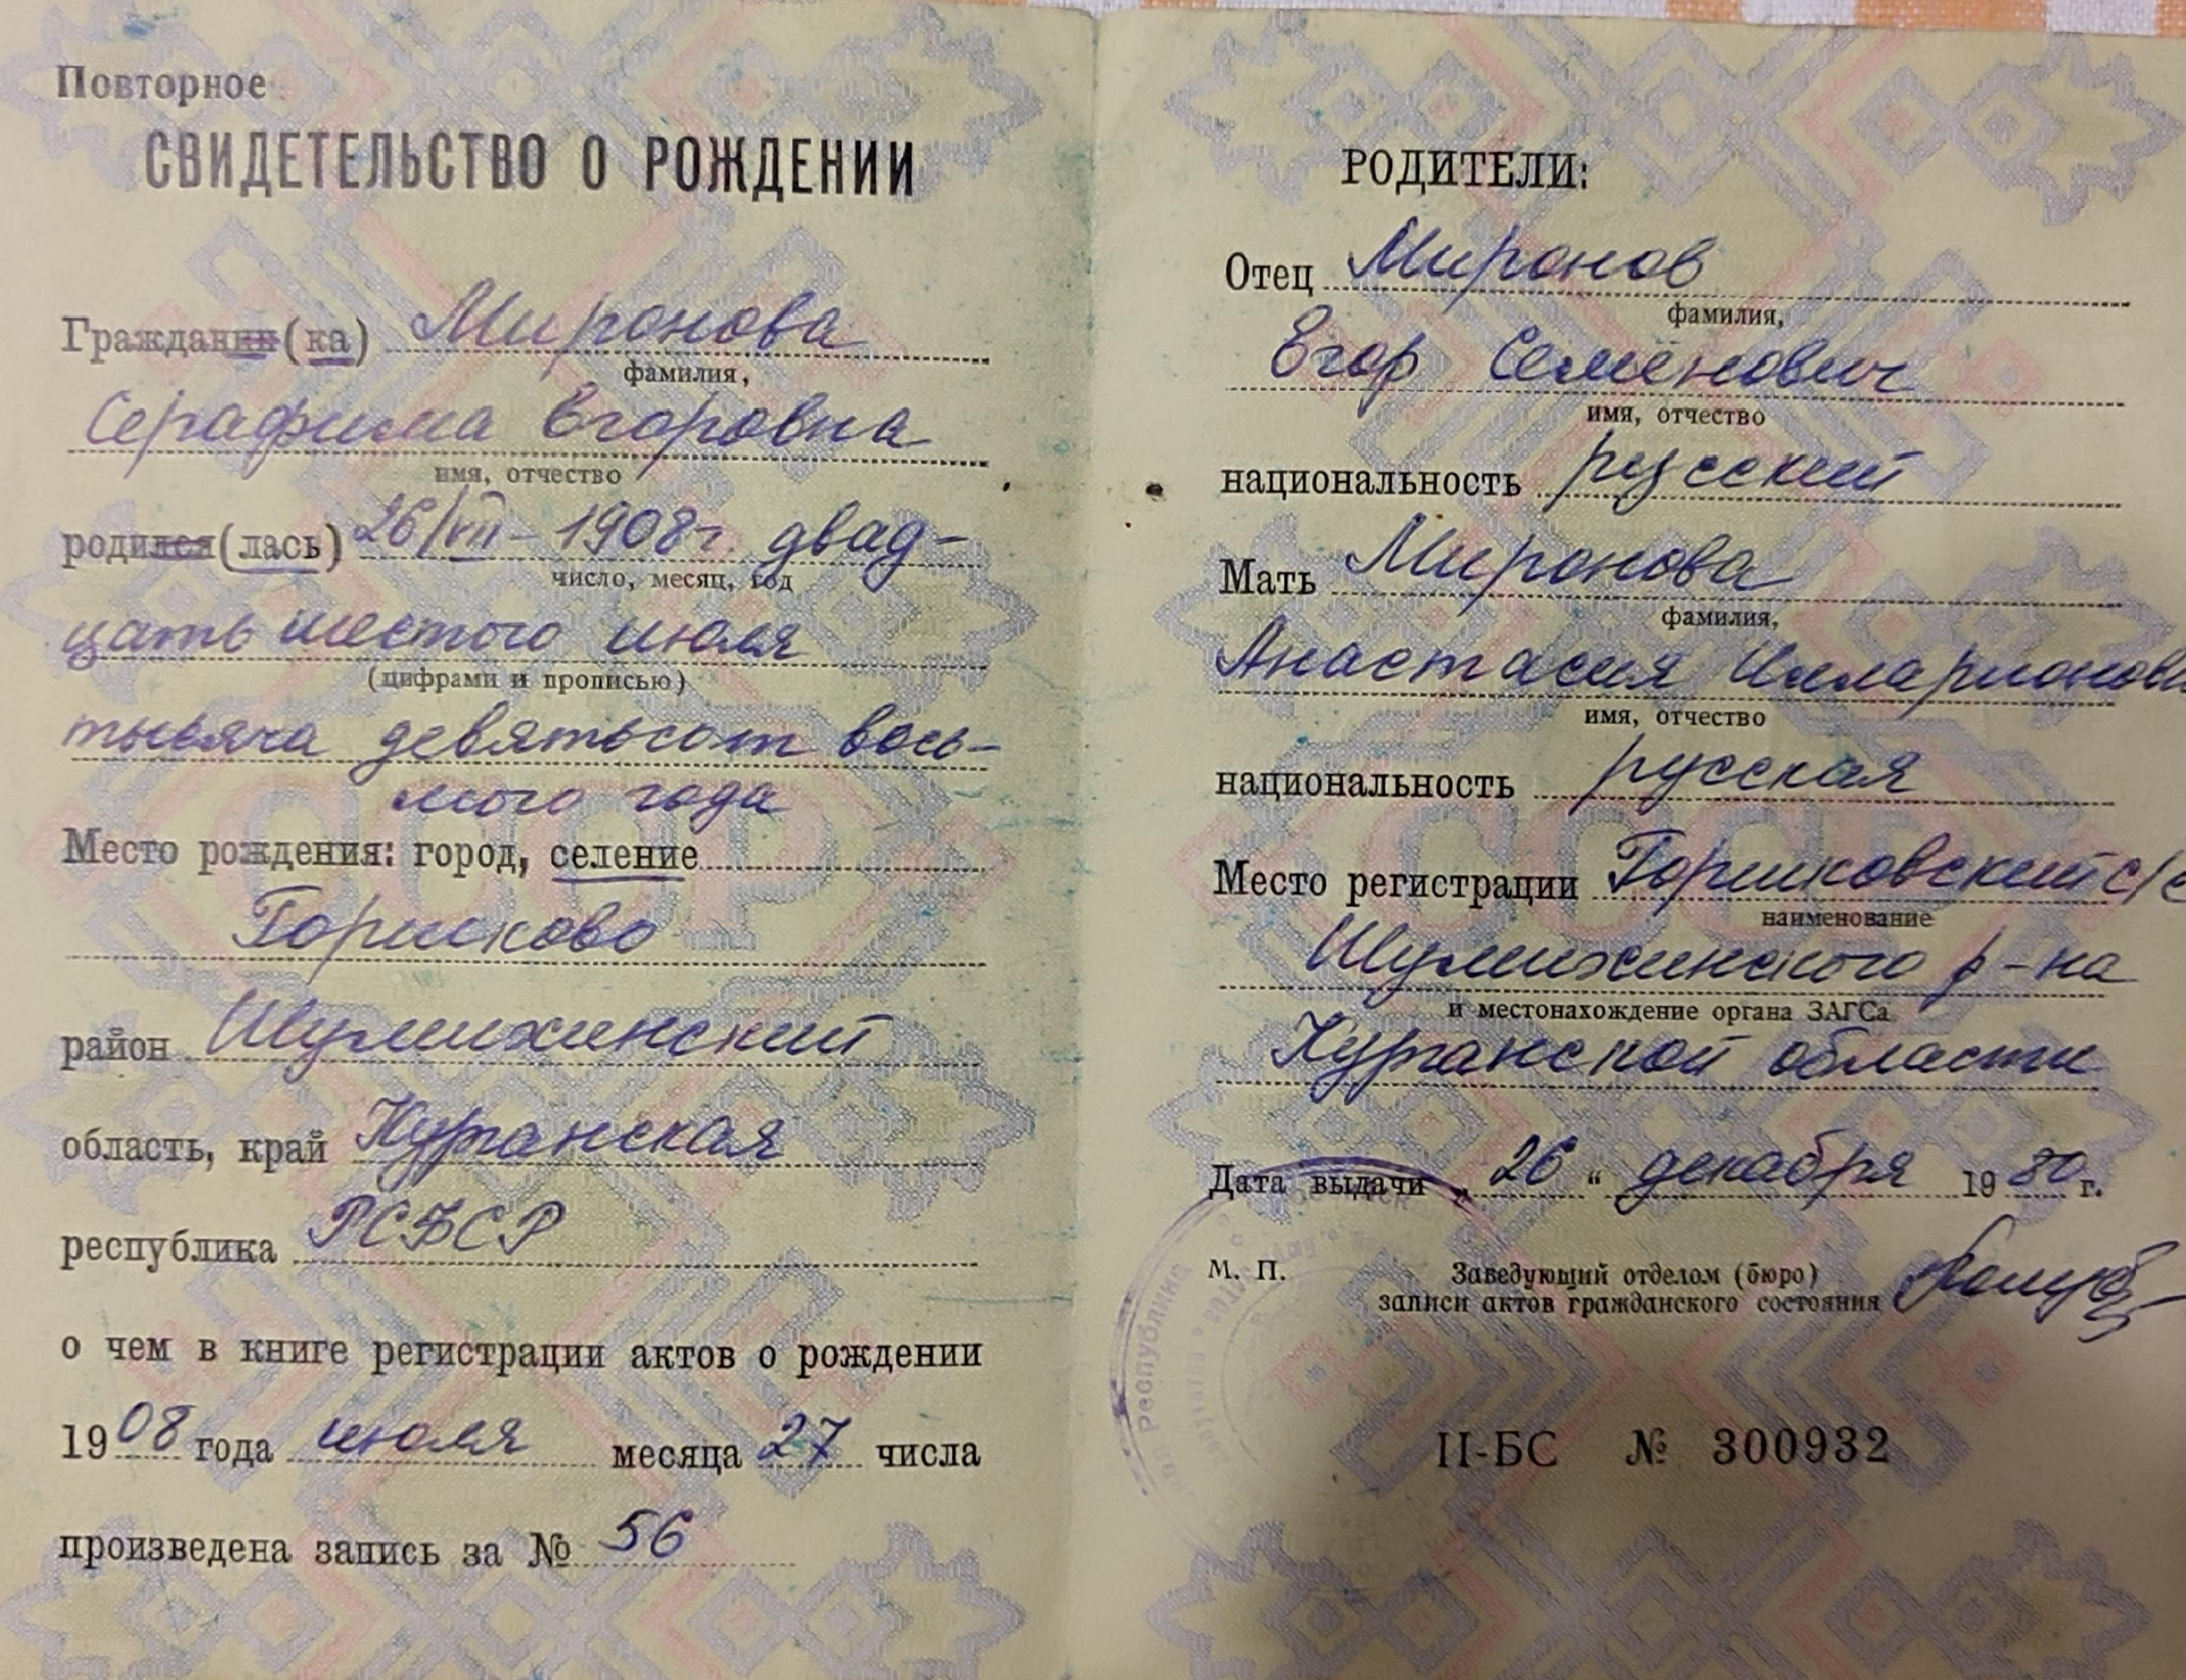 Повторное
СВИДЕТЕЛЬСТВО О РОЖДЕНИИ
Гражданин(ка) Миронова
фамилия,
Серафима Егоровна
имя, отчество
родился(лась) 26/VII - 1908г. двад-
число, месяц, год
цать шестого июля
(цифрами и прописью)
тысяча девятьсот вось-
мого года
Место рождения: город, селение
Горшково
район Шумихинский
область, край Курганская
республика РСФСР
о чем в книге регистрации актов о рождении
1908 года июля месяца 27 числа
произведена запись за № 56
РОДИТЕЛИ:
Отец Миронов
фамилия,
Егор Семенович
имя, отчество
национальность русский
Мать Миронова
фамилия,
Анастасия Илларионов
имя, отчество
национальность русская
Место регистрации Горшковский с/с
наименование
Шумихинского р-на
и местонахождение органа ЗАГСа
Курганской области
Дата выдачи „ 26 “ декабря 1980 г.
М. П. Заведующий отделом (бюро)
записи актов гражданского состояния
II-БС № 300932
СССР
СССР
Республика